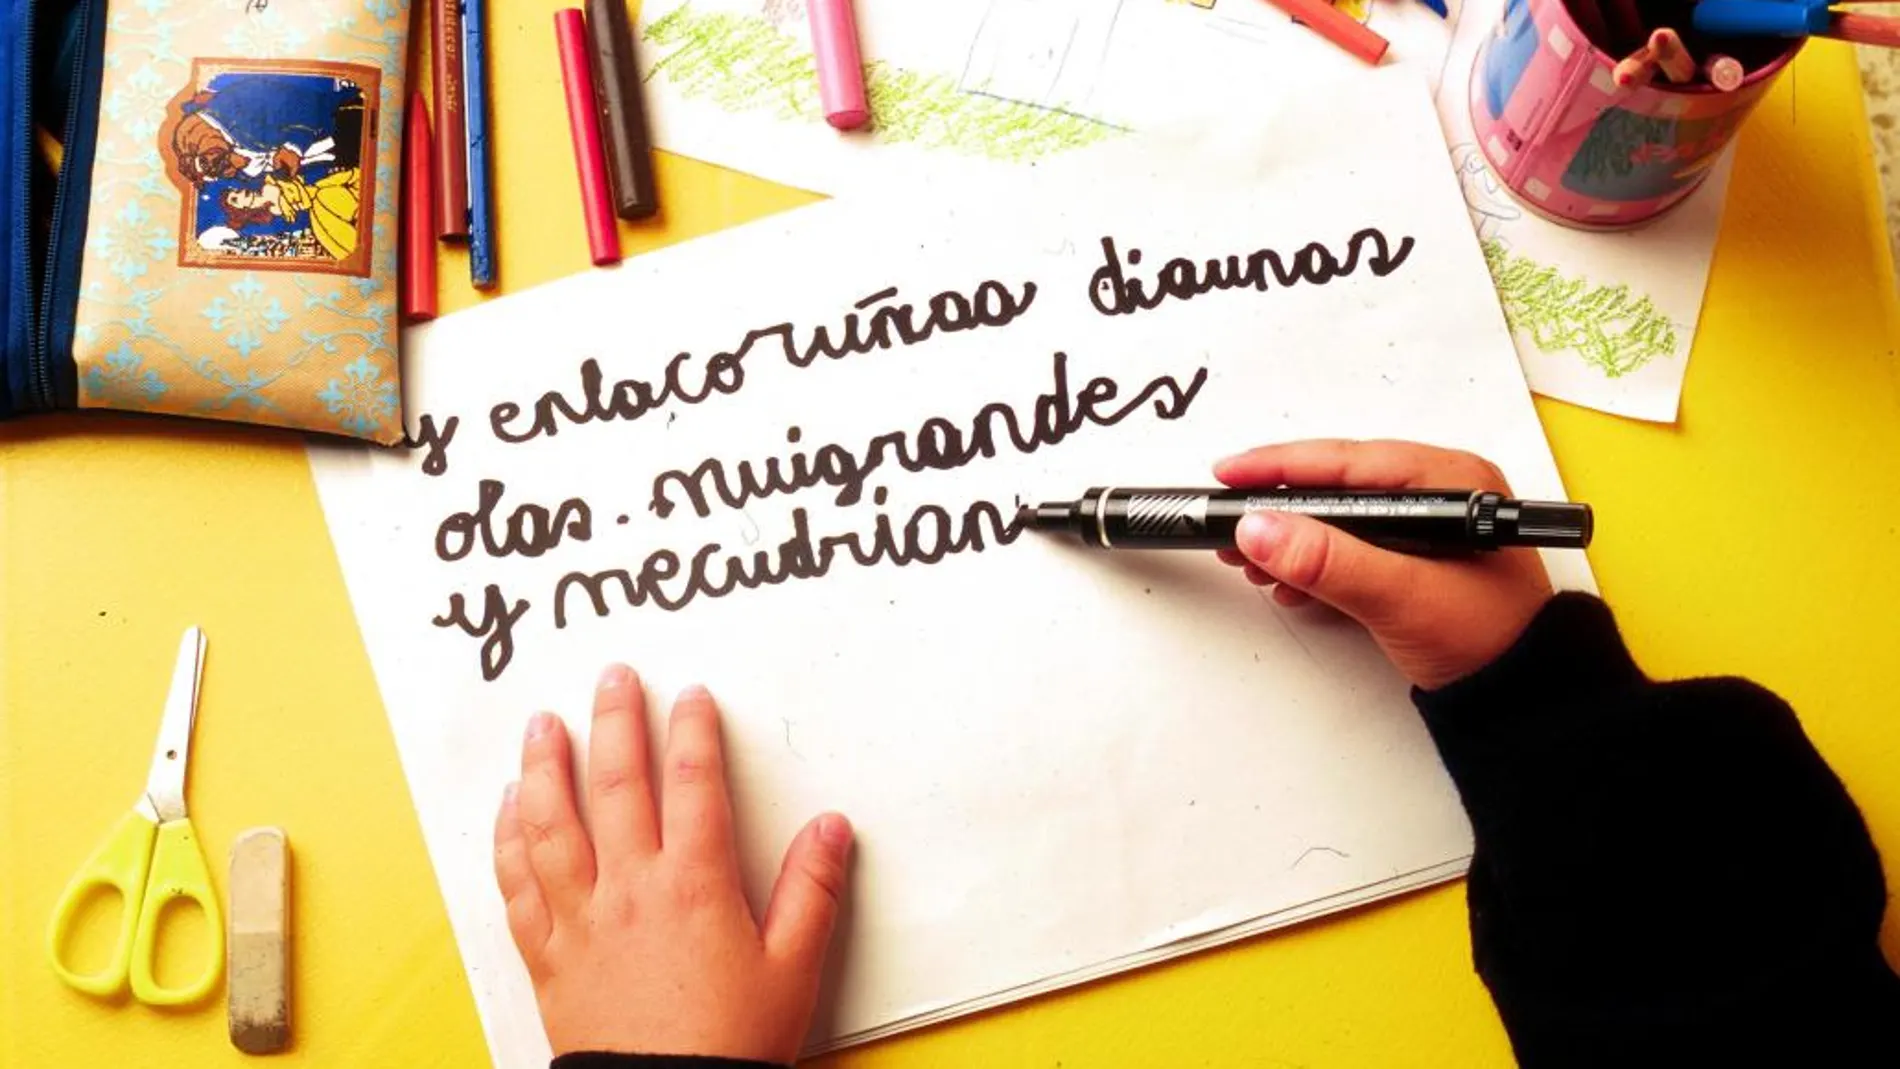 y enlacoruñaa diaunas
olas. muigrandes
y mecudrian